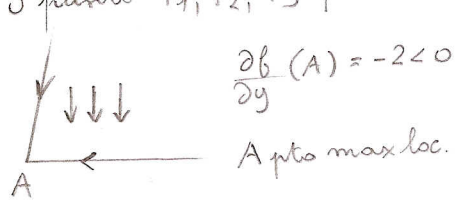 ∂f/∂y (A) = -2 < 0
A pto max loc.
A